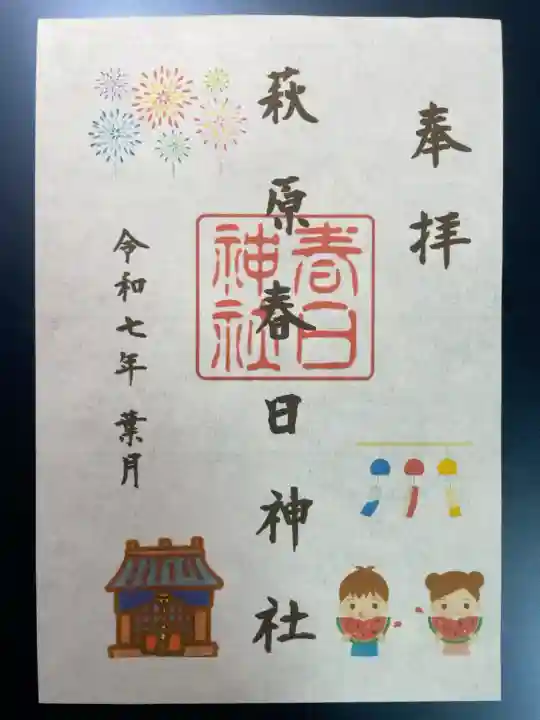 奉拝
萩原春日神社
春日
神社
令和七年葉月